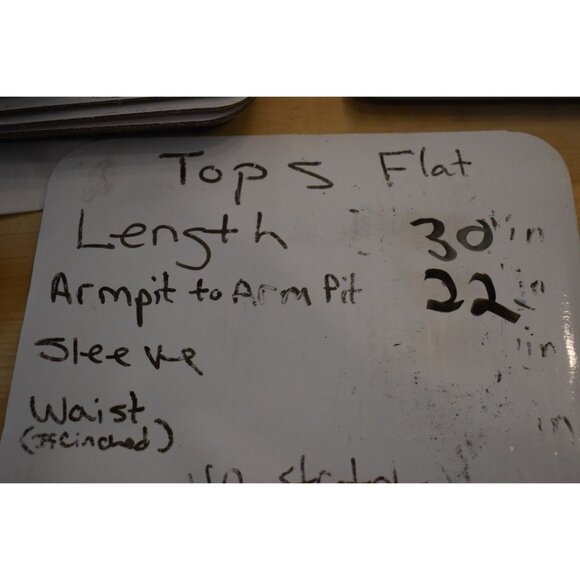 Tops Flat
Length 30 in
Armpit to ArmPit 22 in
Sleeve in
Waist in
(If Cinched)